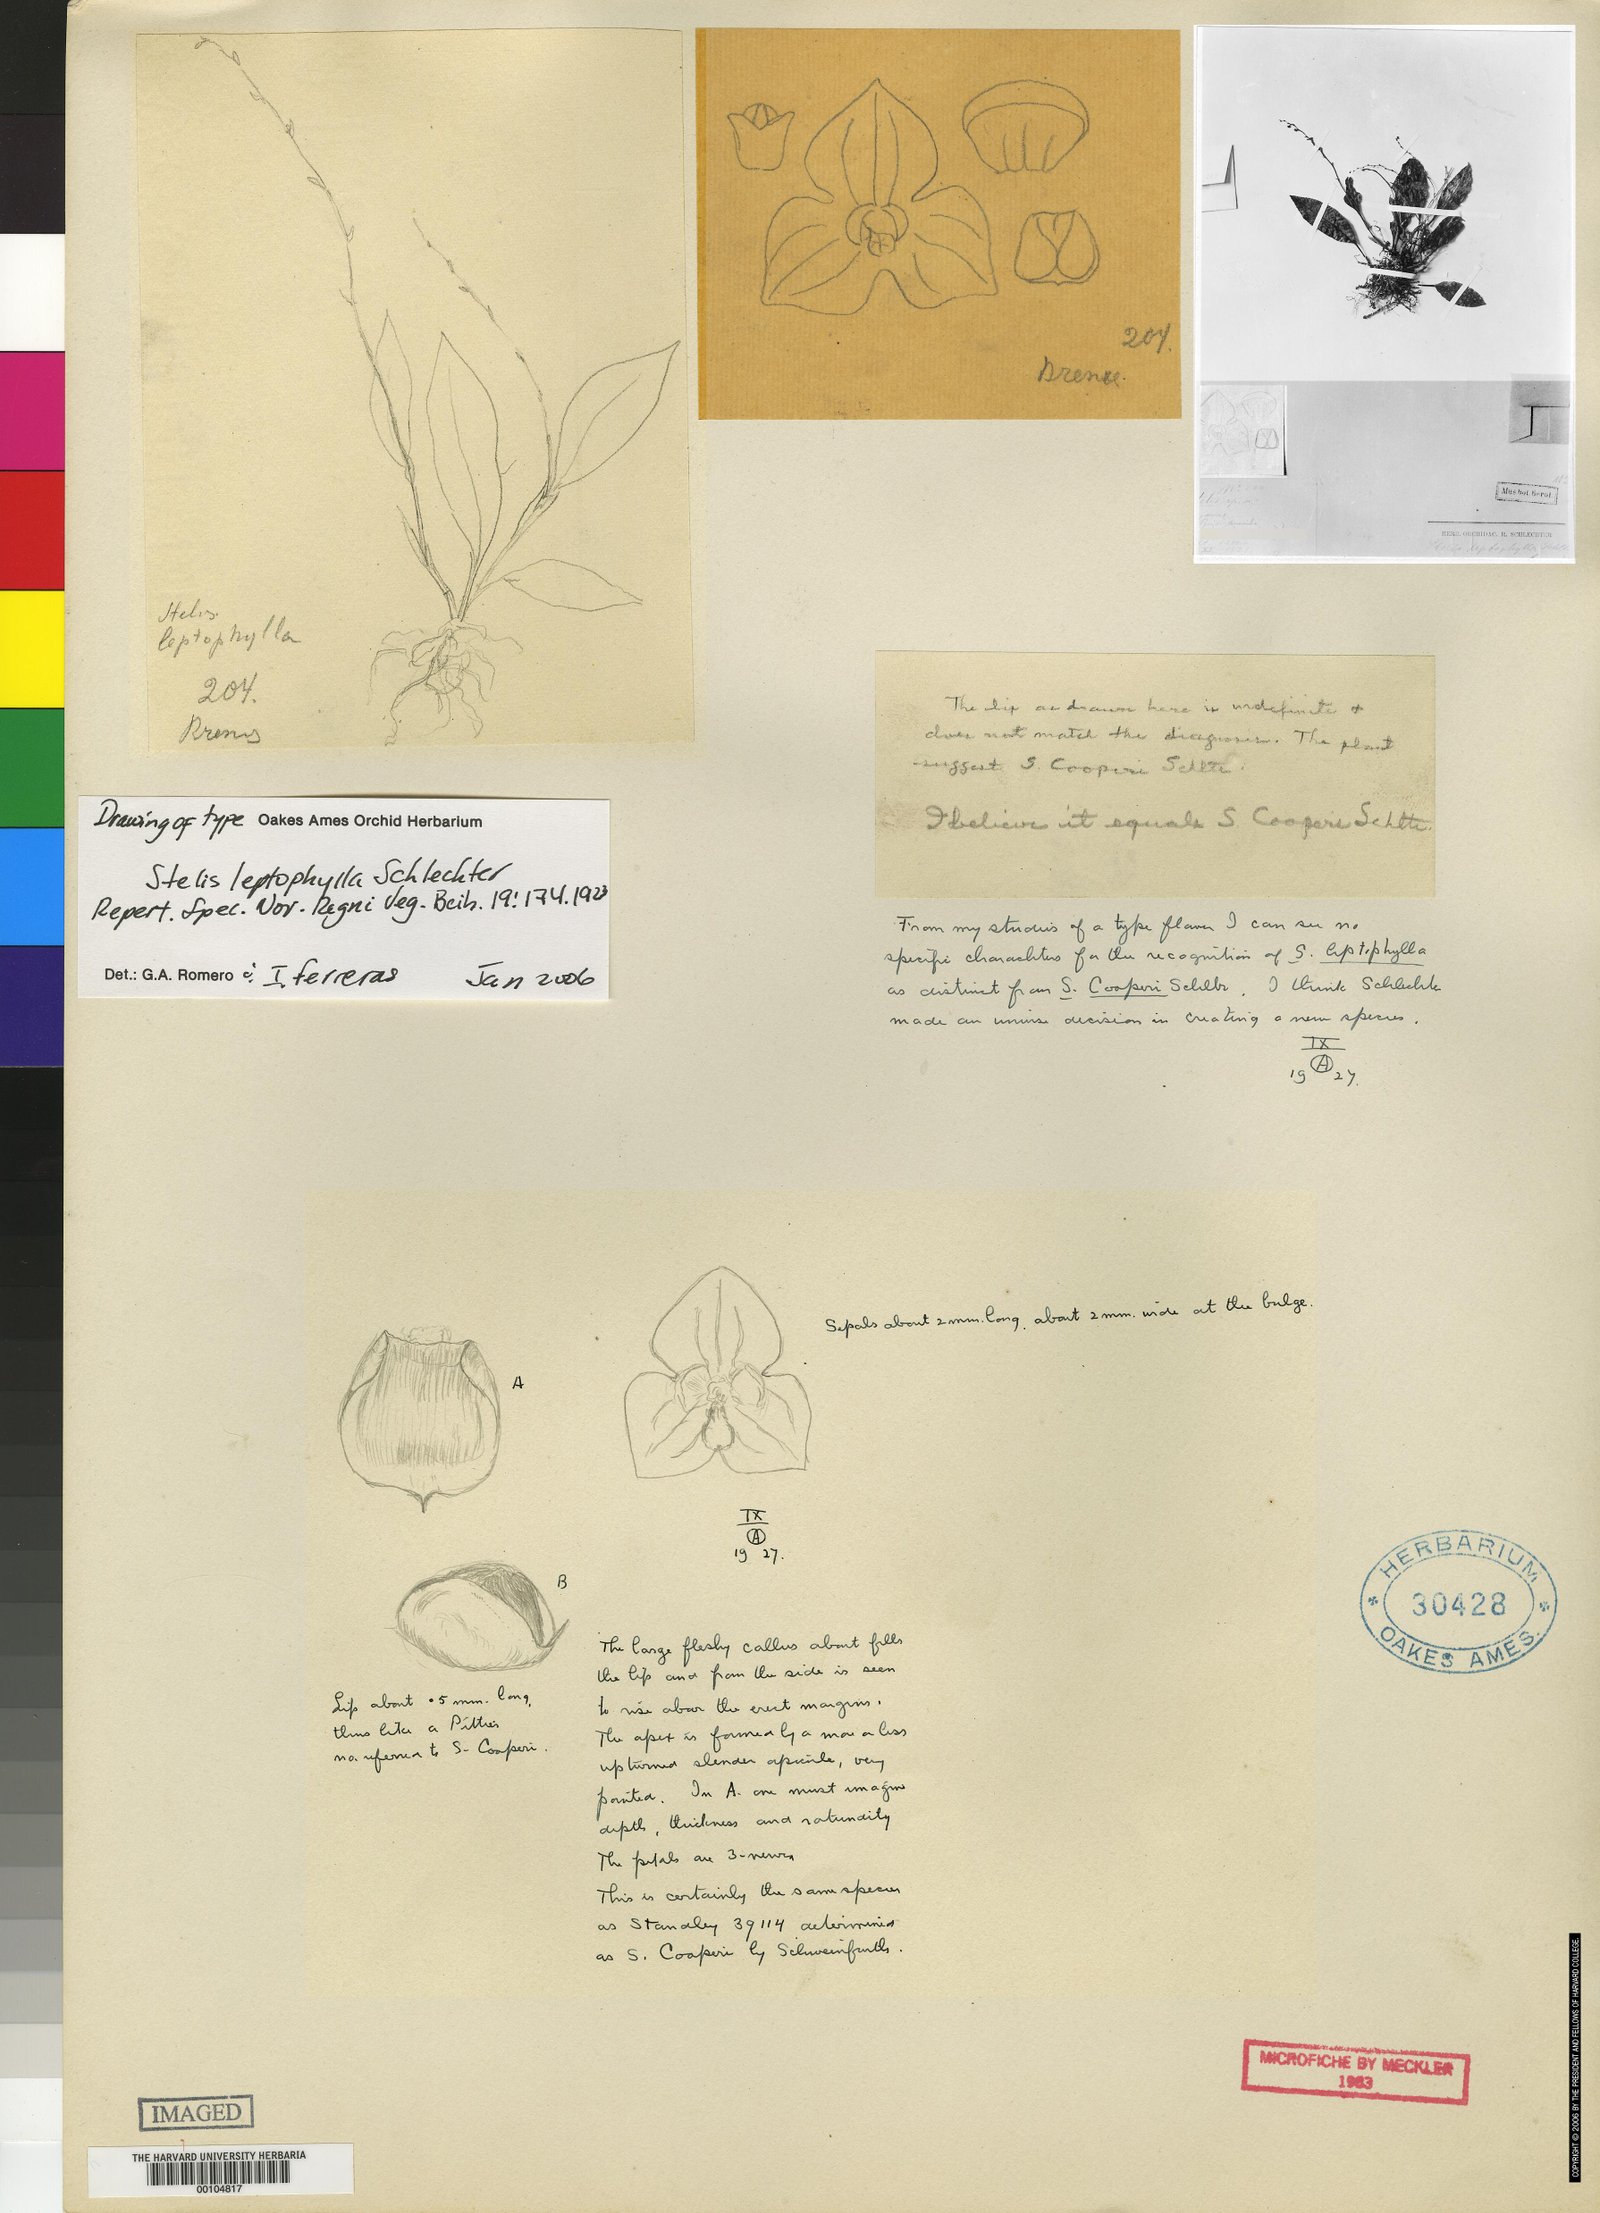 Stelis
leptophylla
204.
Brenes
204.
Brenes.
Mus. bot. Berol.
HERB. ORCHIDAC. R. SCHLECHTER
The lip as drawn here is indefinite &
does not match the diagnosis. The plant
suggest S. Cooperi Schltr.
I believe it equals S. Cooperi Schltr.
Drawing of type Oakes Ames Orchid Herbarium
Stelis leptophylla Schlechter
Repert. Spec. Nov. Regni Veg. Beih. 19: 174. 1923
Det.: G.A. Romero & I. ferreras Jan 2006
From my studies of a type flower I can see no
specific charachters for the recognition of S. leptophylla
as distinct from S. Cooperi Schltr. I think Schlechter
made an unwise decision in creating a new species.
IX
A
19 27.
Sepals about 2 mm. long, about 2 mm. wide at the bulge.
A
IX
A
19 27.
B
HERBARIUM
30428
OAKES AMES.
Lip about .5 mm. long,
thus like a Pittier
no. referred to S. Cooperi.
The large fleshy callus about fills
the lip and from the side is seen
to rise above the erect margins.
The apex is formed by a more or less
upturned slender apicule, very
pointed. In A. one must imagine
depth, thickness and rotundity
The petals are 3-nerved
This is certainly the same species
as Standley 39114 determined
as S. Cooperi by Schweinfurth.
MICROFICHE BY MECKLER
1983
IMAGED
THE HARVARD UNIVERSITY HERBARIA
00104817
COPYRIGHT © 2006 BY THE PRESIDENT AND FELLOWS OF HARVARD COLLEGE.